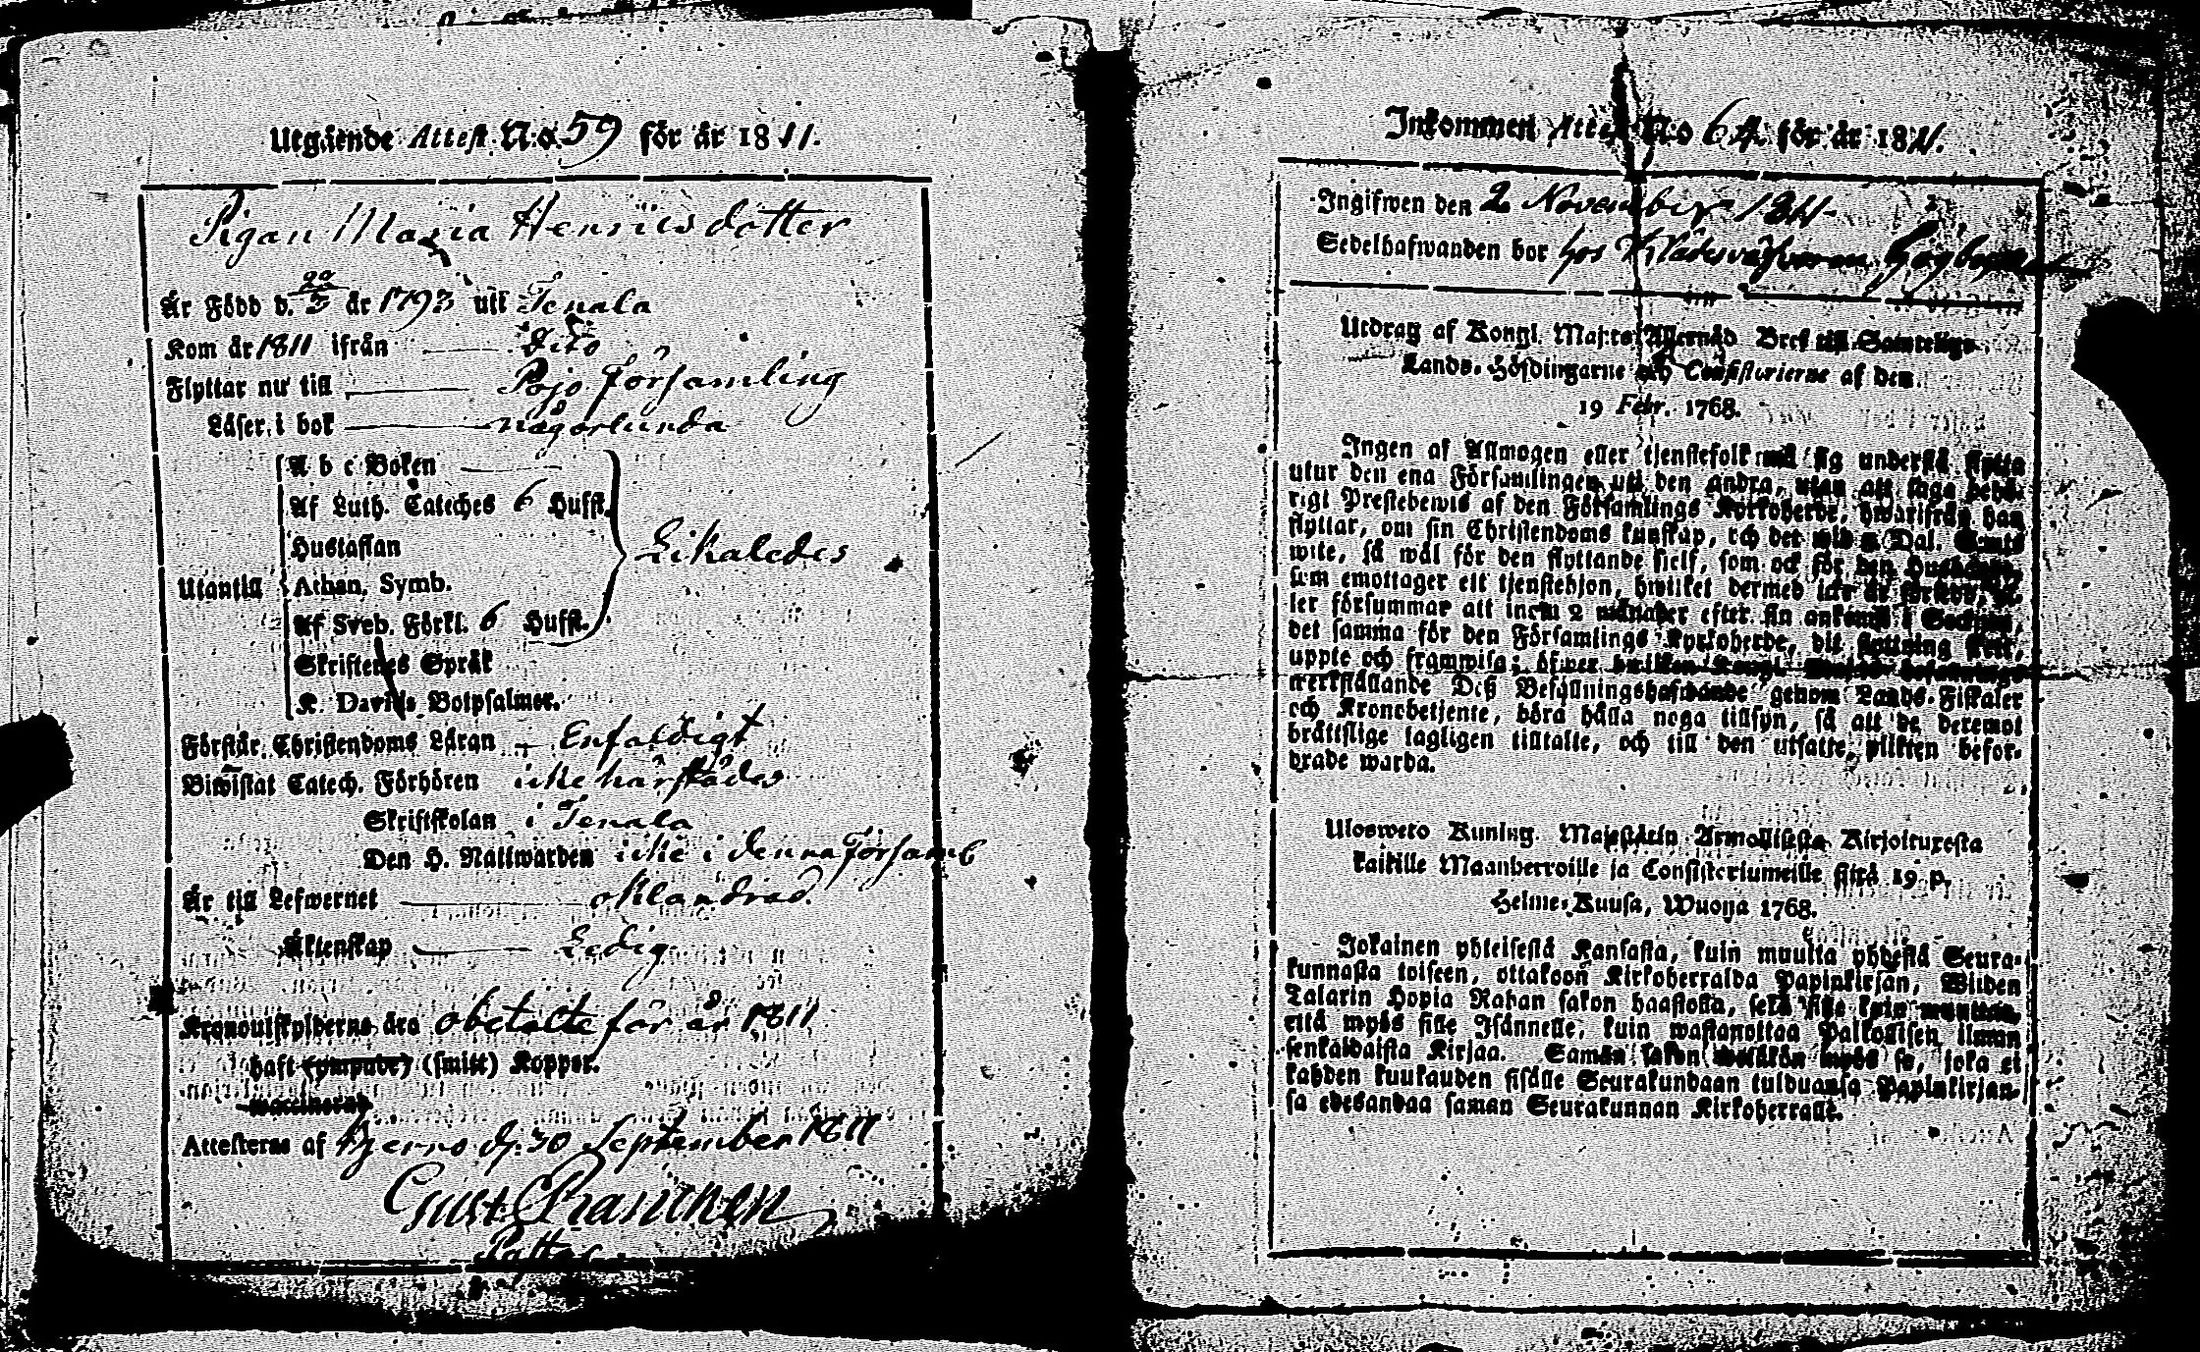 Utgående Attest N:o 59 för år 1811.
Pigan Maria Henricsdotter
Är Född d. 22/3 år 1793 uti Tenala
Kom år 1811 ifrån dito
Flyttar nu till Pojo församling
Läser i bok någorlunda
A b c Boken
Af Luth. Cateches 6 Hufst.
Hustaflan
Likaledes
Utantill Athan. Symb.
Af Sveb. Förkl. 6 Hufst.
Skriftenes Språk
K. Davids Botpsalmer.
Förstår Christendoms Läran Enfaldigt
Biwistat Catech. Förhören icke härstädes
Skriftskolan i Tenala
Den H. Nattwarden icke i denna Församl
Är till Lefwernet oklandrad.
Äktenskap Ledig
Kronoutskylderne äro obetalte för år 1811
haft (ympade) (smitt) Koppor.
waccinerad
Attesteras af Bjerno d. 30 September 1811
Gust.
Inkommen Attest N:o 64 för år 1811.
Ingifwen den 2 November 1811.
Sedelhafwanden bor hos
Utdrag af Kongl. Maj:ts Allernåd. Bref till Samtelige
Lands-Höfdingarne och Consistorierne af den
19 Febr. 1768.
Ingen af Allmogen eller tjenstefolk må sig understå flytta
utur den ena Församlingen uti den andra, utan att taga behö-
rigt Prestebewis af den Församlings Kyrkoherde, hwarifrån han
flyttar, om sin Christendoms kunskap, och det wid 2 Dal. S:mts
wite, så wäl för den flyttande sielf, som ock för den Husbonde,
som emottager ett tjenstehjon, hwilket dermed icke är försedt, el-
ler försummar att inom 2 månader efter sin ankomst i Socknen,
det samma för den Församlings Kyrkoherde, dit flyttning skedt,
uppte och framwisa; öfwer hwilken Kongl. Maj:ts
werkställande Deß Befallningshafwande genom Lands-Fiskaler
och Kronobetjente, böra hålla noga tillsyn, så att de deremot
bråttslige lagligen tilltalte, och till den utsatte plikten befor-
drade warda.
Ulosweto Kuning. Majestätin Armollisesta Kirjoituxesta
kaikille Maanherroille ja Consistoriumeille siitä 19 p.
Helme-Kuusa, Wuonna 1768.
Jokainen yhteisestä Kansasta, kuin muutta yhdestä Seura-
kunnasta toiseen, ottakoon Kirkoherralda Papinkirjan, Wiiden
Talarin Hopia Rahan sakon haastolla, sekä sille kuin muuttaa,
että myös sille Isännelle, kuin wastanottaa Palkollisen ilman
senkaldaista Kirjaa. Saman sakon wetäkön myös se, joka ei
kahden kuukauden sisälle Seurakundaan tulduansa Papinkirjan-
sa edesandaa saman Seurakunnan Kirkoherralle.